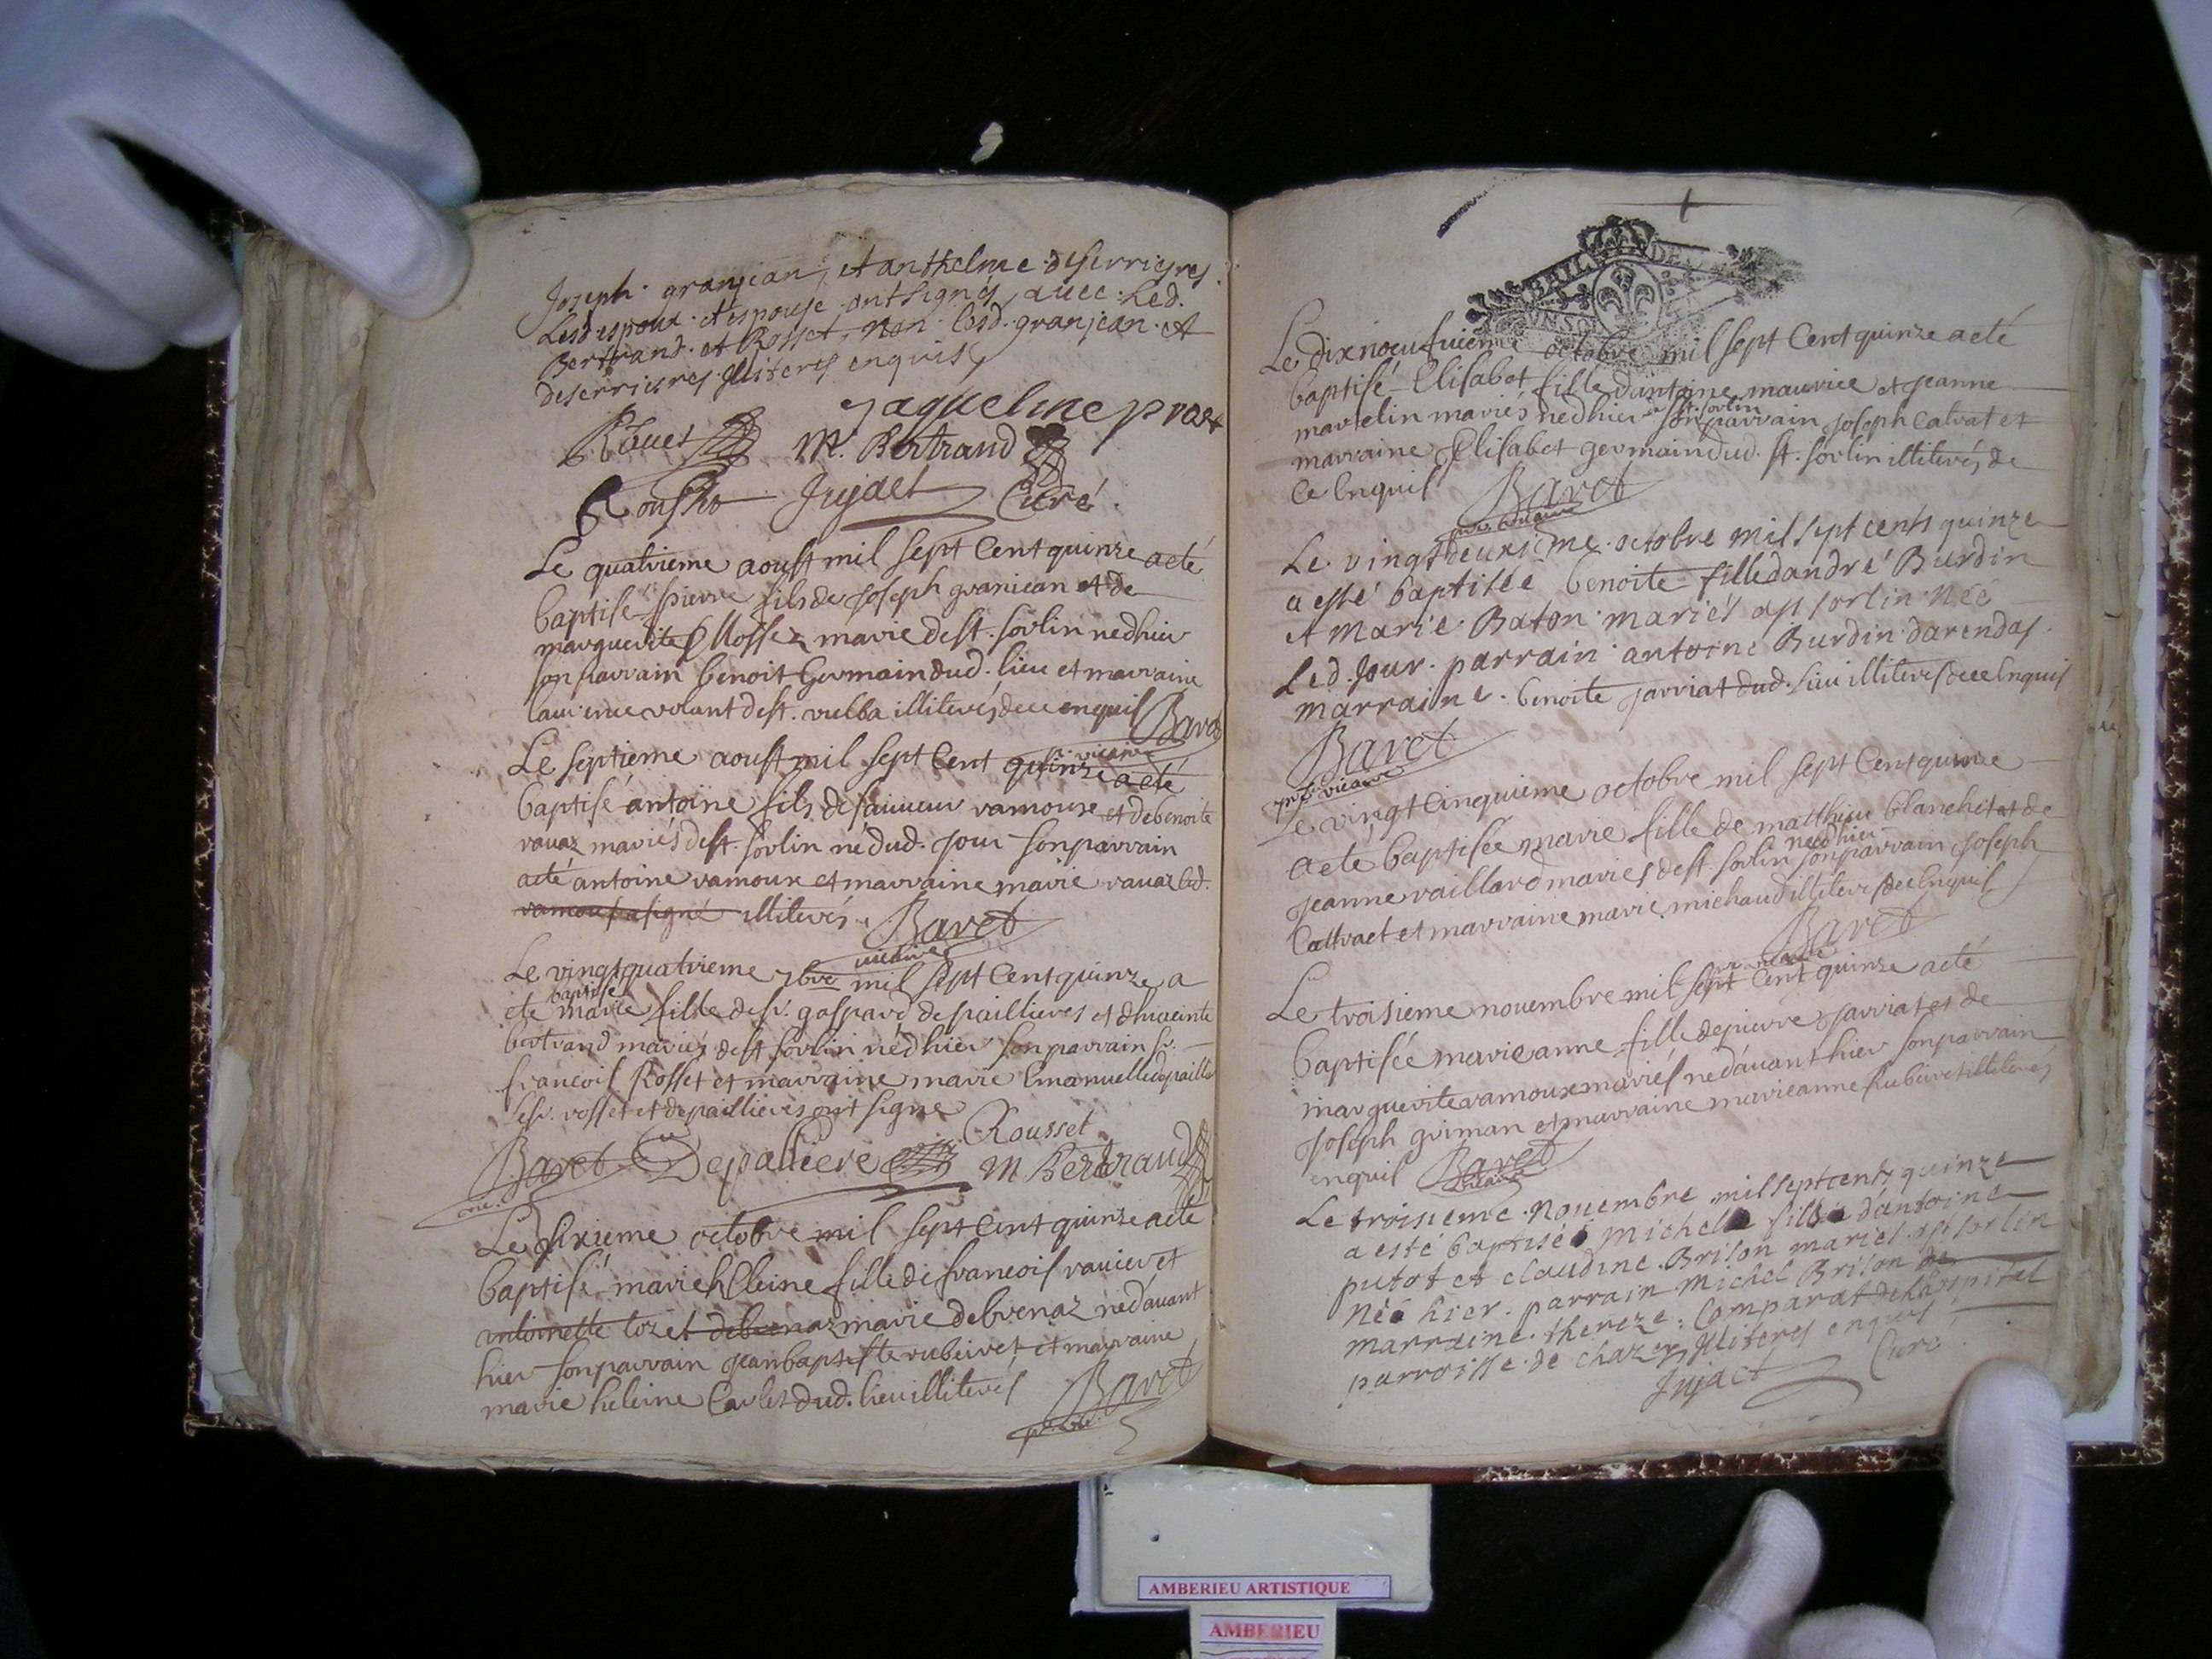 Joseph granjean, et anthelme deserrieres.
Lesd espoux et espouse ont signés, avec Led.
Bertrand et Rosset, non Lesd. granjean et
deserrieres illiteres enquis
Jaqueline prost
M. Bertrand
Jujaet Curé
Le quatrieme aoust mil sept Cent quinze a eté
baptise pierre fils de Joseph granjean et de
marguerite Mosse marie de st. sorlin ne d hier
son parrain benoit Germain dud. lieu et marraine
volant de st. vulba illiterés de ce enquis Baret
pr. vicaire
Le septieme aoust mil sept Cent quinze a eté
baptisé antoine fils de vamoux et de benoite
ravaz mariés de st. sorlin né dud. jour son parrain
a eté antoine vamoux et marraine marie ravaz led.
vamoux a signé illiterés. Baret
vicaire
Le vingt quatrieme 7bre mil sept Cent quinze a
baptise
ete marie fille de sr. gaspard de paillieres et
bertrand mariés de st sorlin né d hier son parrain sr.
francois Rosset et marraine marie Emanuelle
les sr. rosset et depaillieres ont signe
Rousset
Baret Depaliere M Bertrand
vic.
Le sixieme octobre mil sept Cent quinze a eté
baptisé marie heleine fille de francois et
antoinette marie debrenaz né d'avant
hier son parrain Jean baptiste rubeivet et marraine
marie heleine Carlet dud. lieu illiterés Baret
pr. vic.
Le dixneoufvieme octobre mil sept Cent quinze a eté
baptisé Elisabet fille dantoine maurice et Jeanne
a st. sorlin
martelin mariés né d hier son parrain Joseph Calvat et
marraine Elisabet germain dud. st. sorlin illiterés de
Ce Enquis Baret
pr. vicaire
Le vingt deuxieme octobre mil sept cents quinze
a esté baptisée benoite fille dandré Burdin
et Marie Baton mariés a st sorlin Née
Led. Jour. parrain antoine Burdin darendas.
marraine benoite Jarriat dud. lieu illiterés de ce Enquis
Baret
pr. vicaire
Le vingt Cinquieme octobre mil sept Cent quinze
a eté baptisée marie fille de matthieu blanchet et de
née d hier
Jeanne vaillard mariés de st. sorlin son parrain Joseph
et marraine marie michaud illiteres de ce Enquis
Baret
pr. vicaire
Le troisieme novembre mil sept Cent quinze a eté
baptisée marie anne fille de pierre Jarriat et de
marguerite vamoux mariés né d'avant hier son parrain
Joseph griman et marraine marieanne Rubeivet illiterés
enquis Baret
vicaire
Le troisieme Novembre mil sept cents quinze
a esté baptisé michel d'antoine
putot et claudine Brison mariés a st sorlin
Né hier. parrain Michel Brison de
marraine thereze Comparat de Lhospital
parroisse de chazey illiteres enquis
Jujact Curé
AMBERIEU ARTISTIQUE
AMBERIEU